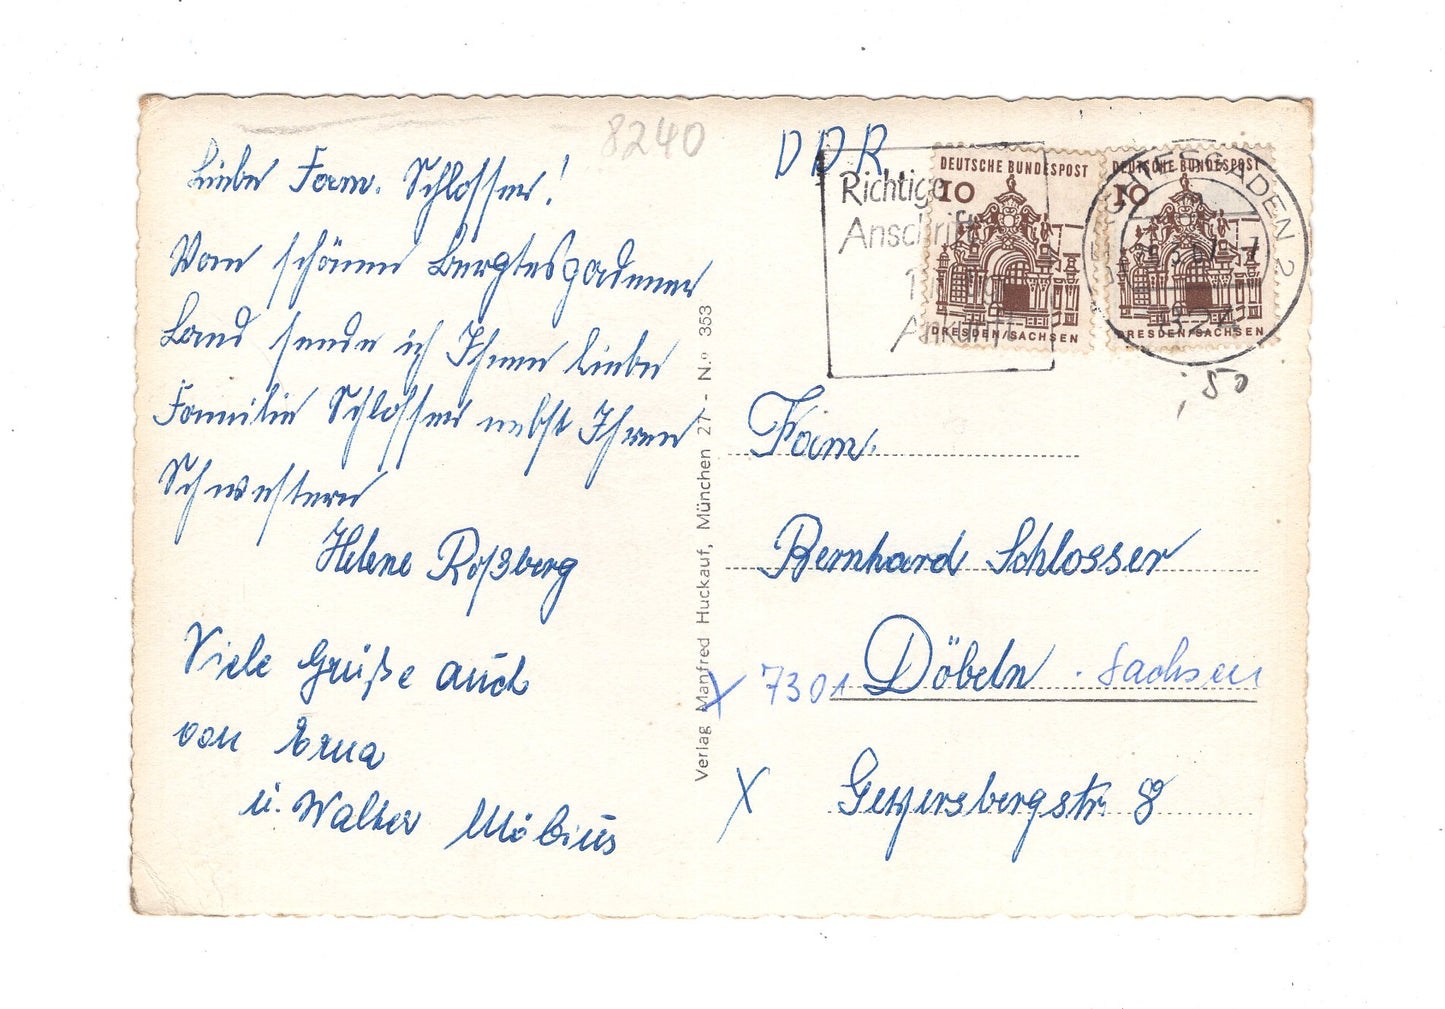 8240
Liebe Fam. Schlosser!
Vom schönen Berchtesgadener
Land sende ich Ihnen liebe
Familie Schlosser nebst Ihren
Schwestern
Helene Roßberg
Viele Grüße auch
von Erna
u. Walter Möbius
Verlag Manfred Huckauf, München 27 - N.º 353
DDR
Richtige
Anschrift
Ankunft
DEUTSCHE BUNDESPOST
10
DRESDEN/SACHSEN
DEUTSCHE BUNDESPOST
10
DRESDEN/SACHSEN
,50
Fam.
Bernhard Schlosser
X 7301 Döbeln. Sachsen
X Geyersbergstr. 8